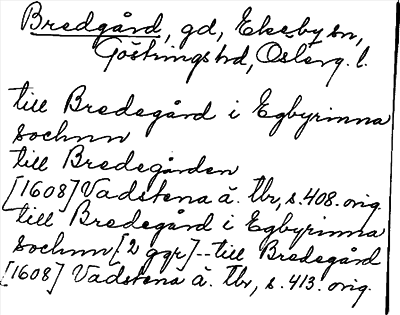 Bredgård, gd, Ekeby sn,
Göstrings hd, Österg. l.
till Bredegård i Egbyrinna
sochnn
till Bredegården
[1608] Vadstena ä. tbr, s. 408. orig.
till Bredegård i Egbyrinna
sochnn [2 ggr] -- till Bredegård
[1608] Vadstena ä. tbr, s. 413. orig.